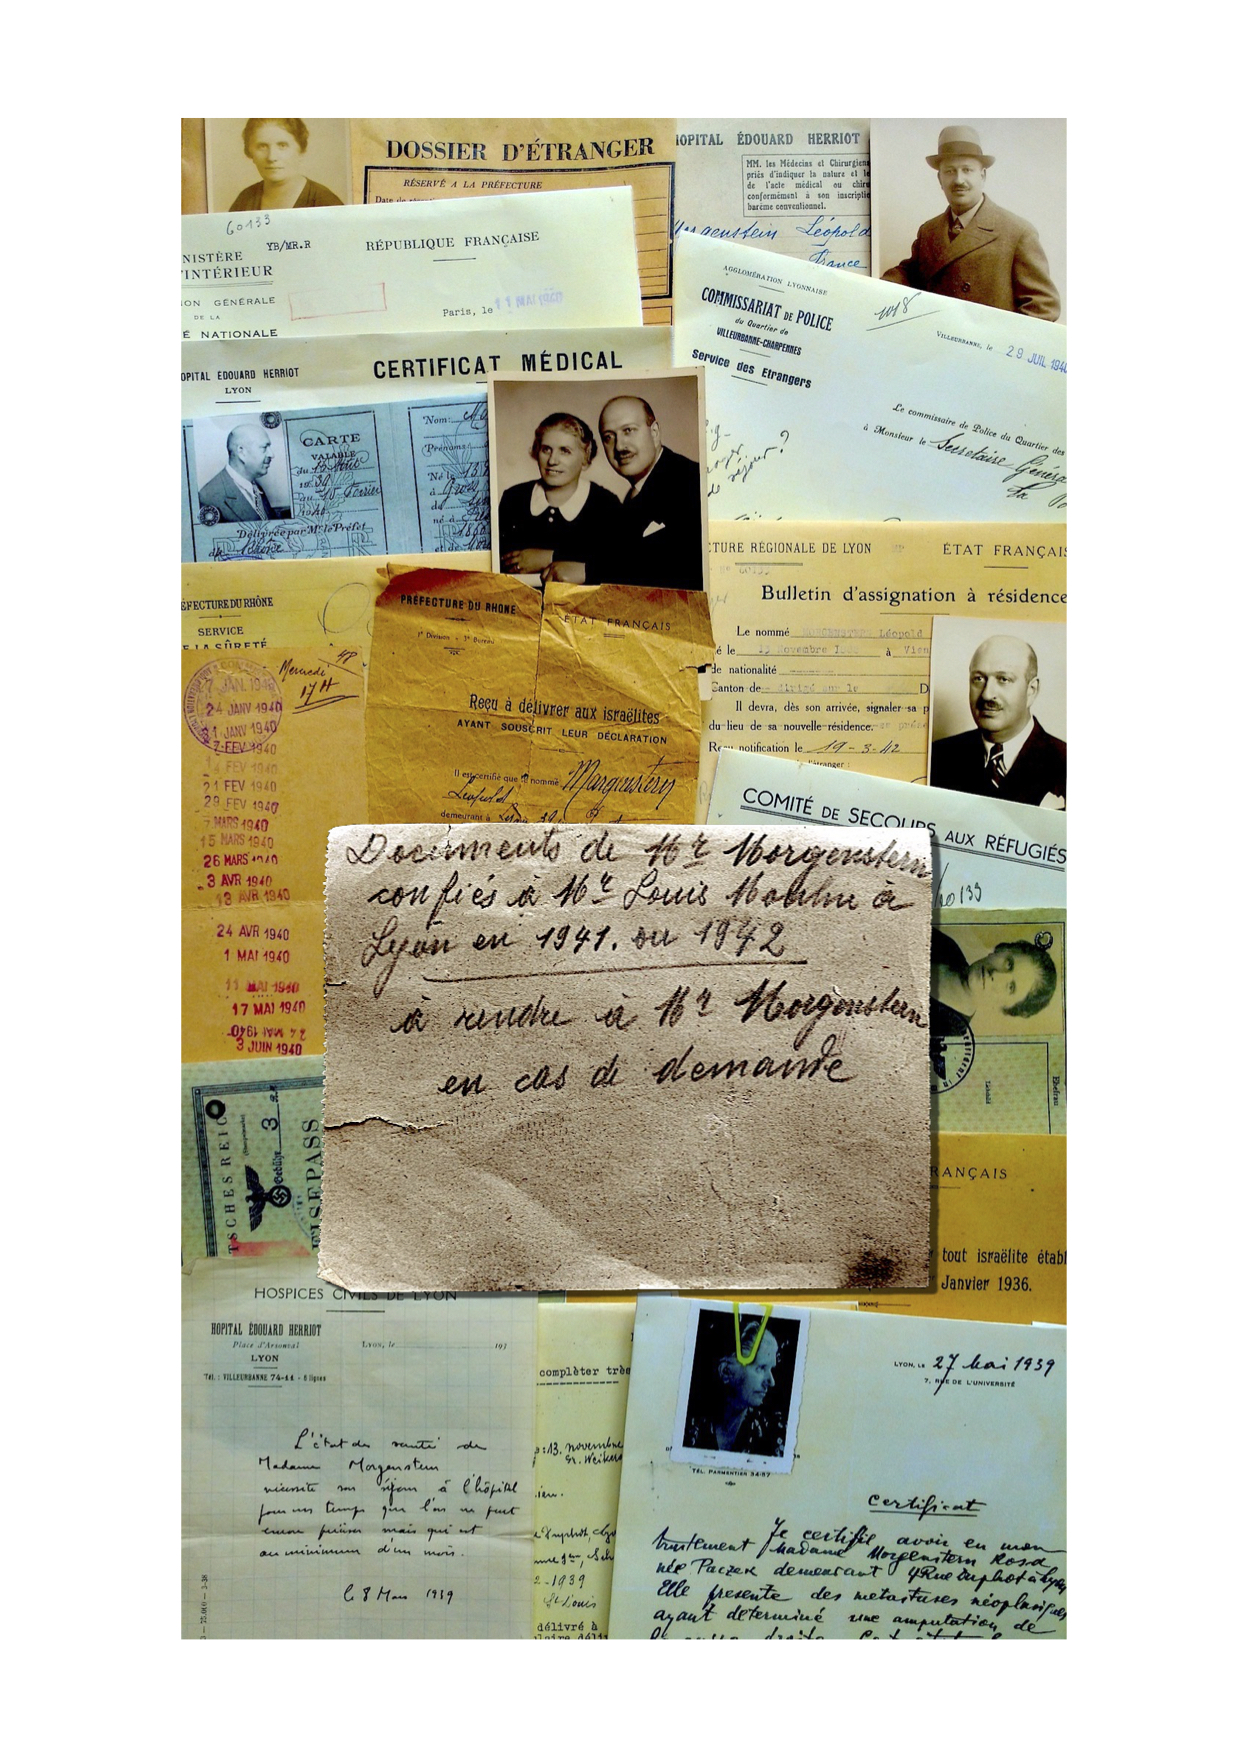 DOSSIER D'ÉTRANGER
RÉSERVÉ A LA PRÉFECTURE
HOPITAL ÉDOUARD HERRIOT
MM. les Médecins et Chirurgiens
priés d'indiquer la nature et le
de l'acte médical ou
conformément à son
barème conventionnel.
Morgenstein Léopold
France
60133
NISTÈRE
YB/MR.R
RÉPUBLIQUE FRANÇAISE
'INTÉRIEUR
ION GÉNÉRALE
DE LA
É NATIONALE
Paris, le 11 MAI 1940
AGGLOMÉRATION LYONNAISE
COMMISSARIAT DE POLICE
du Quartier de
VILLEURBANNE-CHARPENNES
Service des Etrangers
1018
VILLEURBANNE, le 29 JUIL 1940
Le commissaire de Police du Quartier des
à Monsieur le Secrétaire Général
de séjour?
CERTIFICAT MÉDICAL
OPITAL ÉDOUARD HERRIOT
LYON
CARTE
VALABLE
Nom:
Prénoms:
Délivrée par Mr. le Préfet
du Rhône
CTURE RÉGIONALE DE LYON
ÉTAT FRANÇAIS
Bulletin d'assignation à résidence
Le nommé MORGENSTERN Léopold
né le 13 Novembre à Vien
de nationalité
Canton de dirigé sur le D
Il devra, dès son arrivée, signaler sa p
du lieu de sa nouvelle résidence.
Reçu notification le 19-3-42
l'étranger :
ÉFECTURE DU RHÔNE
SERVICE
DE LA SÛRETÉ
Mercredi 48
17 H
7 JAN. 1940
24 JANV 1940
31 JANV 1940
7 FEV 1940
14 FEV 1940
21 FEV 1940
29 FEV 1940
7 MARS 1940
15 MARS 1940
26 MARS 1940
3 AVR 1940
13 AVR 1940
24 AVR 1940
1 MAI 1940
11 MAI 1940
17 MAI 1940
24 MAI 1940
3 JUIN 1940
PRÉFECTURE DU RHONE
ÉTAT FRANÇAIS
1e Division - 3e Bureau
Reçu à délivrer aux israélites
AYANT SOUSCRIT LEUR DÉCLARATION
Il est certifié que le nommé Morgenstern
Léopold
demeurant à Lyon
COMITÉ DE SECOURS AUX RÉFUGIÉS
Documents de Mr Morgenstern
confiés à Mr Louis Moulne à
Lyon en 1941. ou 1942
à rendre à Mr Morgenstern
en cas de demande
Ehefrau
TSCHES REIC
Gebühr 3
EISEPASS
RANÇAIS
tout israélite établ
Janvier 1936.
HOSPICES CIVILS DE LYON
HOPITAL ÉDOUARD HERRIOT
Place d'Arsonval
LYON
Tél. : VILLEURBANNE 74-11 - 8 lignes
Lyon, le 193
L'état de santé de
Madame Morgenstern
nécessite son séjour à l'hôpital
pour un temps que l'on ne peut
encore préciser mais qui est
au minimum d'un mois.
le 8 Mars 1939
compléter très
: 13. novembre
Gr. Weikers
2-1939
St Louis
délivré à
LYON, LE 27 Mai 1939
7, RUE DE L'UNIVERSITÉ
TÉL. PARMENTIER 34-57
Certificat
Je certifie avoir en mon
traitement Madame Morgenstern Rosa
née Paczek demeurant 4 Rue Duphot à Lyon
Elle présente des metastases néoplasiques
ayant déterminé une amputation de